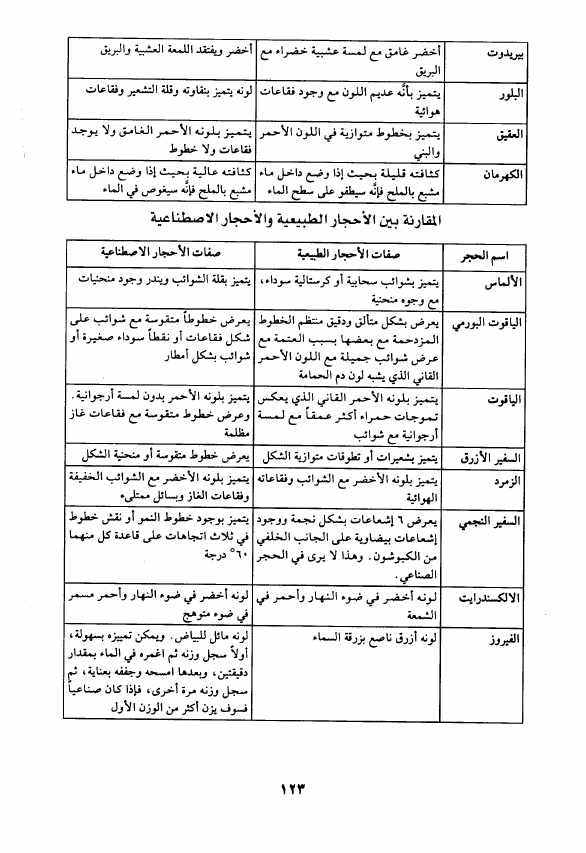 بيريدوت
أخضر غامق مع لمسة عشبية خضراء مع
البريق
أخضر ويفتقد اللمعة العشبية والبريق
البلور
يتميز بأنَّه عديم اللون مع وجود فقاعات
هوائية
لونه يتميز بنقاوته وقلة التشعير وفقاعات
العقيق
يتميز بخطوط متوازية في اللون الأحمر
والبني
يتميز بلونه الأحمر الغامق ولا يوجد
فقاعات ولا خطوط
الكهرمان
كثافته قليلة بحيث إذا وضع داخل ماء
مشبع بالملح فإنَّه سيطفو على سطح الماء
كثافته عالية بحيث إذا وضع داخل ماء
مشبع بالملح فإنَّه سيغوص في الماء
المقارنة بين الأحجار الطبيعية والأحجار الاصطناعية
اسم الحجر
صفات الأحجار الطبيعية
صفات الأحجار الاصطناعية
الألماس
يتميز بشوائب سحابية أو كرستالية سوداء،
مع وجوه منحنية
يتميز بقلة الشوائب ويندر وجود منحنيات
الياقوت البورمي
يعرض بشكل متألق ودقيق منتظم الخطوط
المزدحمة مع بعضها بسبب العتمة مع
عرض شوائب جميلة مع اللون الأحمر
القاني الذي يشبه لون دم الحمامة
يعرض خطوطاً متقوسة مع شوائب على
شكل فقاعات أو نقطاً سوداء صغيرة أو
شوائب بشكل أمطار
الياقوت
يتميز بلونه الأحمر القاني الذي يعكس
تموجات حمراء أكثر عمقاً مع لمسة
أرجوانية مع شوائب
يتميز بلونه الأحمر بدون لمسة أرجوانية.
وعرض خطوط متقوسة مع فقاعات غاز
مظلمة
السفير الأزرق
يتميز بشعيرات أو تطوقات متوازية الشكل
يعرض خطوط متقوسة أو منحنية الشكل
الزمرد
يتميز بلونه الأخضر مع الشوائب وفقاعاته
الهوائية
يتميز بلونه الأخضر مع الشوائب الخفيفة
وفقاعات الغاز وبسائل ممتلىء
السفير النجمي
يعرض ٦ إشعاعات بشكل نجمة ووجود
إشعاعات بيضاوية على الجانب الخلفي
من الكبوشون. وهذا لا يرى في الحجر
الصناعي.
يتميز بوجود خطوط النمو أو نقش خطوط
في ثلاث اتجاهات على قاعدة كل منهما
٦٠° درجة
الالكسندرايت
لونه أخضر في ضوء النهار وأحمر في
الشمعة
لونه أخضر في ضوء النهار وأحمر مسمر
في ضوء متوهج
الفيروز
لونه أزرق ناصع بزرقة السماء
لونه مائل للبياض. ويمكن تمييزه بسهولة،
أولاً سجل وزنه ثم اغمره في الماء بمقدار
دقيقتين، وبعدها امسحه وجففه بعناية، ثم
سجل وزنه مرة أخرى، فإذا كان صناعياً
فسوف يزن أكثر من الوزن الأول
١٢٣